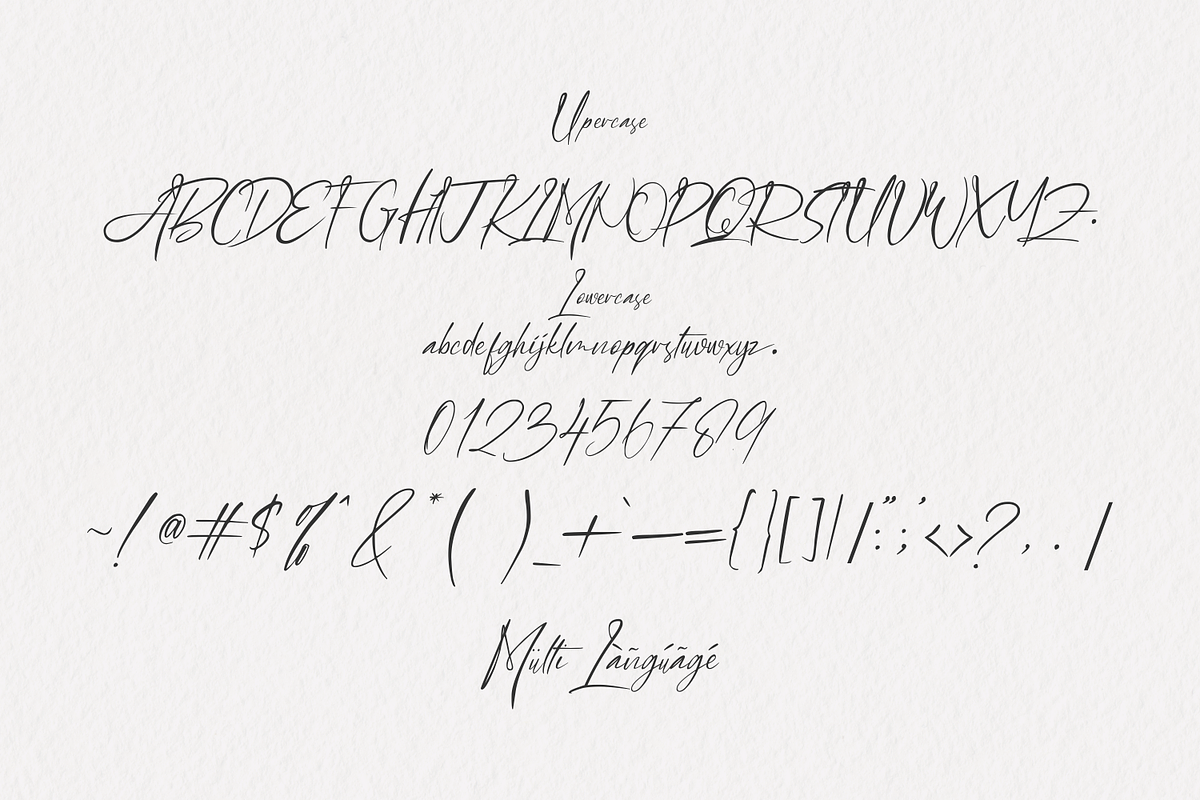 Upercase
ABCDEFGHIJKLMNOPQRSTUVWXYZ.
Lowercase
abcdefghijklmnopqrstuvwxyz.
0123456789
~!@#$%^&*( )_+`—={}[]|/:”;’<>?,../
Mültì Làñgúãgé